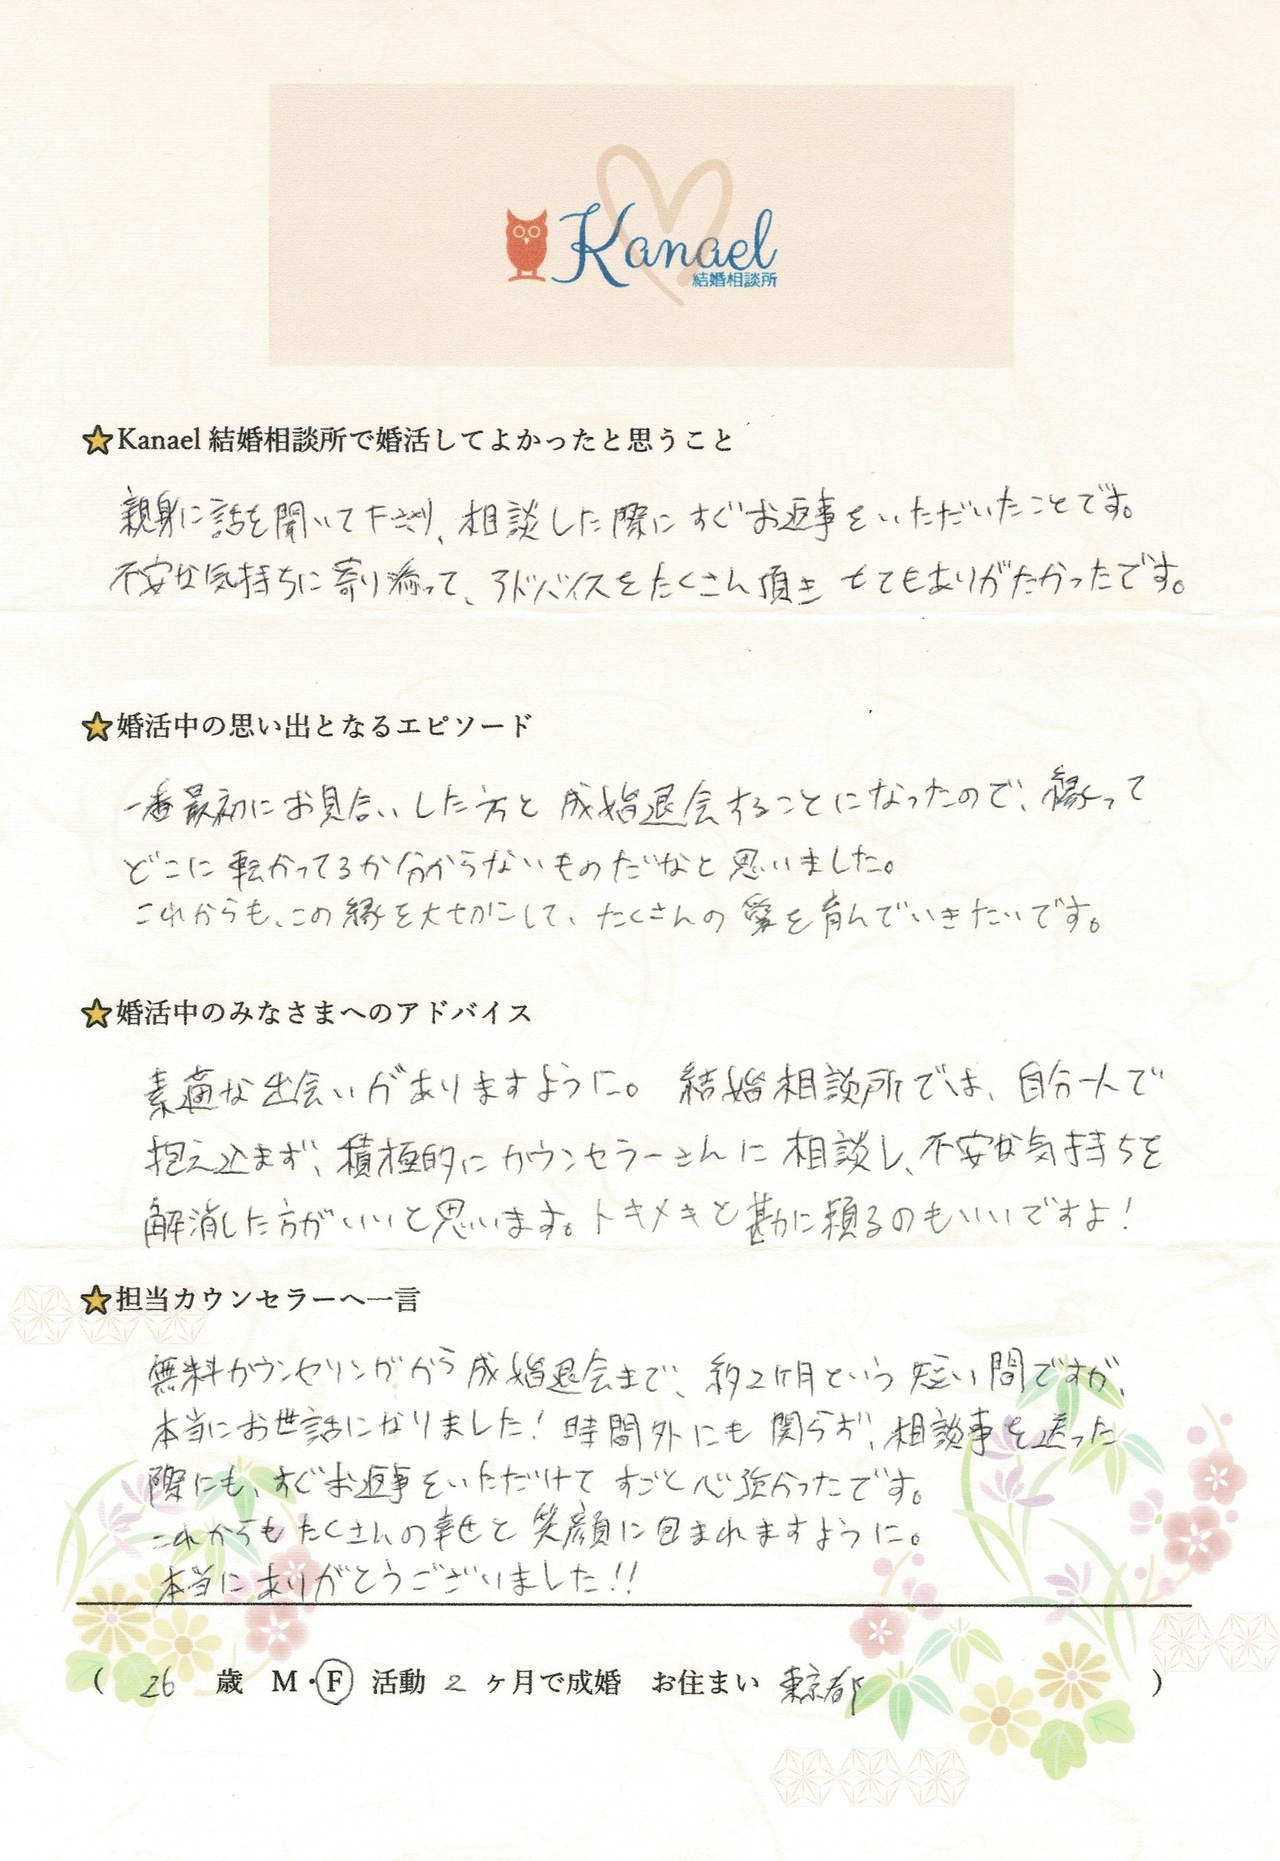 Kanael
結婚相談所
Kanael 結婚相談所で婚活してよかったと思うこと
親身に話を聞いて下さり、相談した際にすぐお返事をいただいたことです。
不安な気持ちに寄り添って、アドバイスをたくさん頂き とてもありがたかったです。
婚活中の思い出となるエピソード
一番最初にお見合いした方と成婚退会することになったので、縁って
どこに転がってるか分からないものだなと思いました。
これからも、この縁を大切にして、たくさんの愛を育んでいきたいです。
婚活中のみなさまへのアドバイス
素適な出会いがありますように。 結婚相談所では、自分一人で
抱え込まず、積極的にカウンセラーさんに相談し、不安な気持ちを
解消した方がいいと思います。トキメキと勘に頼るのもいいですよ！
担当カウンセラーへ一言
無料カウンセリングから成婚退会まで、約2ヶ月という短い間ですが、
本当にお世話になりました！時間外にも関らず、相談事を送った
際にも、すぐお返事をいただけてすごく心強かったです。
これからもたくさんの幸せと笑顔に包まれますように。
本当にありがとうございました!!
( 26 歳 M・F 活動 2 ヶ月で成婚 お住まい 東京都 )